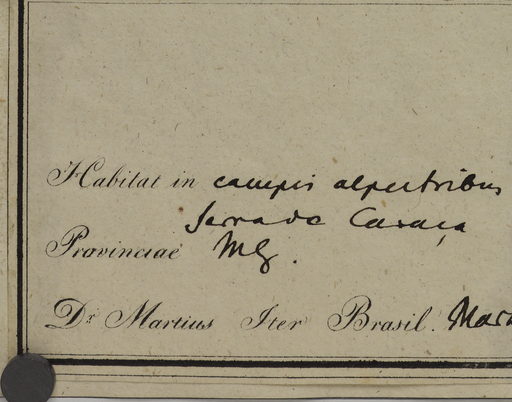 Habitat in campis alpestribus
Serra de Caraça
Provinciae MG.
Dr. Martius Iter Brasil.